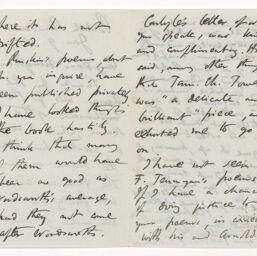 where it has not
drifted.
Ruskin's poems about
wh. you inquire, have
been published privately
I have looked through
the book hastily
& think that many
of them would have
been as good as
Wordsworth's average,
had they not come
after Wordsworth's.
Carlyle's letter of
you speak, was kind
and complimentary. He
said, among other things
that was "a delicate and
brilliant" piece, and
exhorted me to go
on
I have not seen
F. Tennyson's poems
If I have a chance
of doing justice to
your poems, in
with his and Arnold's